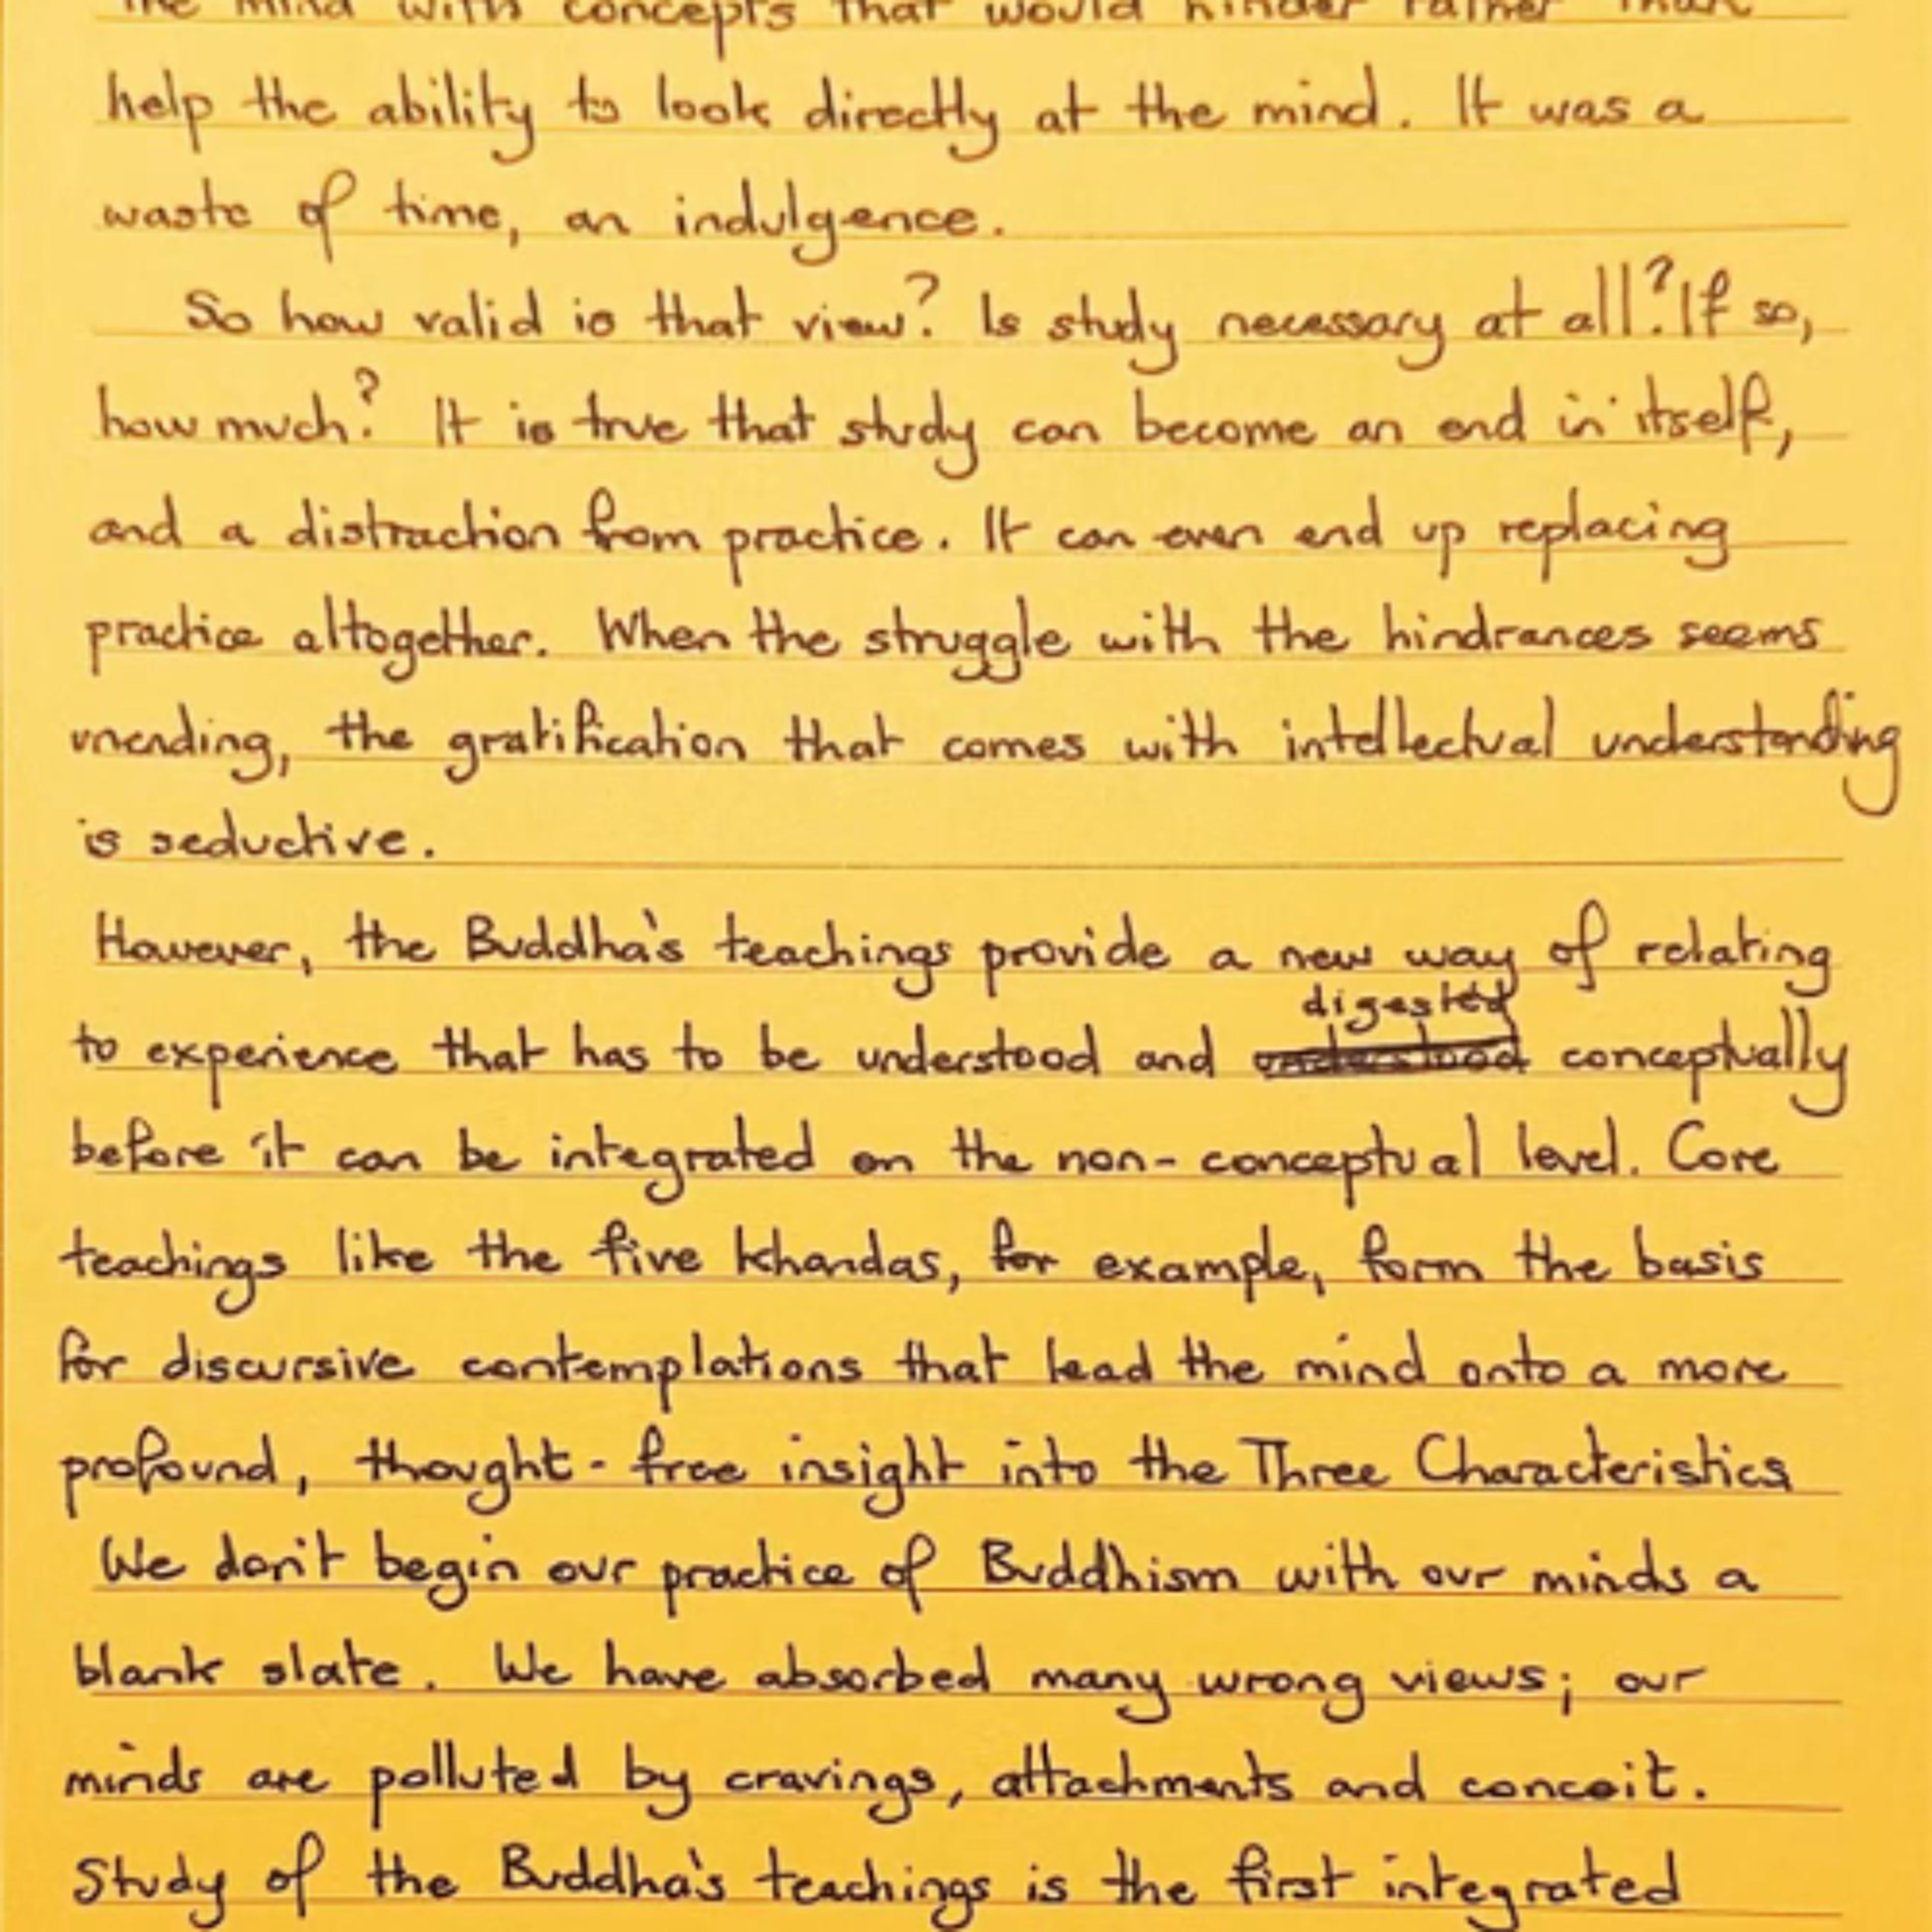 the mind with concepts that would hinder rather than
help the ability to look directly at the mind. It was a
waste of time, an indulgence.
So how valid is that view? Is study necessary at all? If so,
how much? It is true that study can become an end in itself,
and a distraction from practice. It can even end up replacing
practice altogether. When the struggle with the hindrances seems
unending, the gratification that comes with intellectual understanding
is seductive.
However, the Buddha's teachings provide a new way of relating
digested
to experience that has to be understood and understood conceptually
before it can be integrated on the non-conceptual level. Core
teachings like the five khandas, for example, form the basis
for discursive contemplations that lead the mind onto a more
profound, thought-free insight into the Three Characteristics
We don't begin our practice of Buddhism with our minds a
blank slate. We have absorbed many wrong views; our
minds are polluted by cravings, attachments and conceit.
Study of the Buddha's teachings is the first integrated